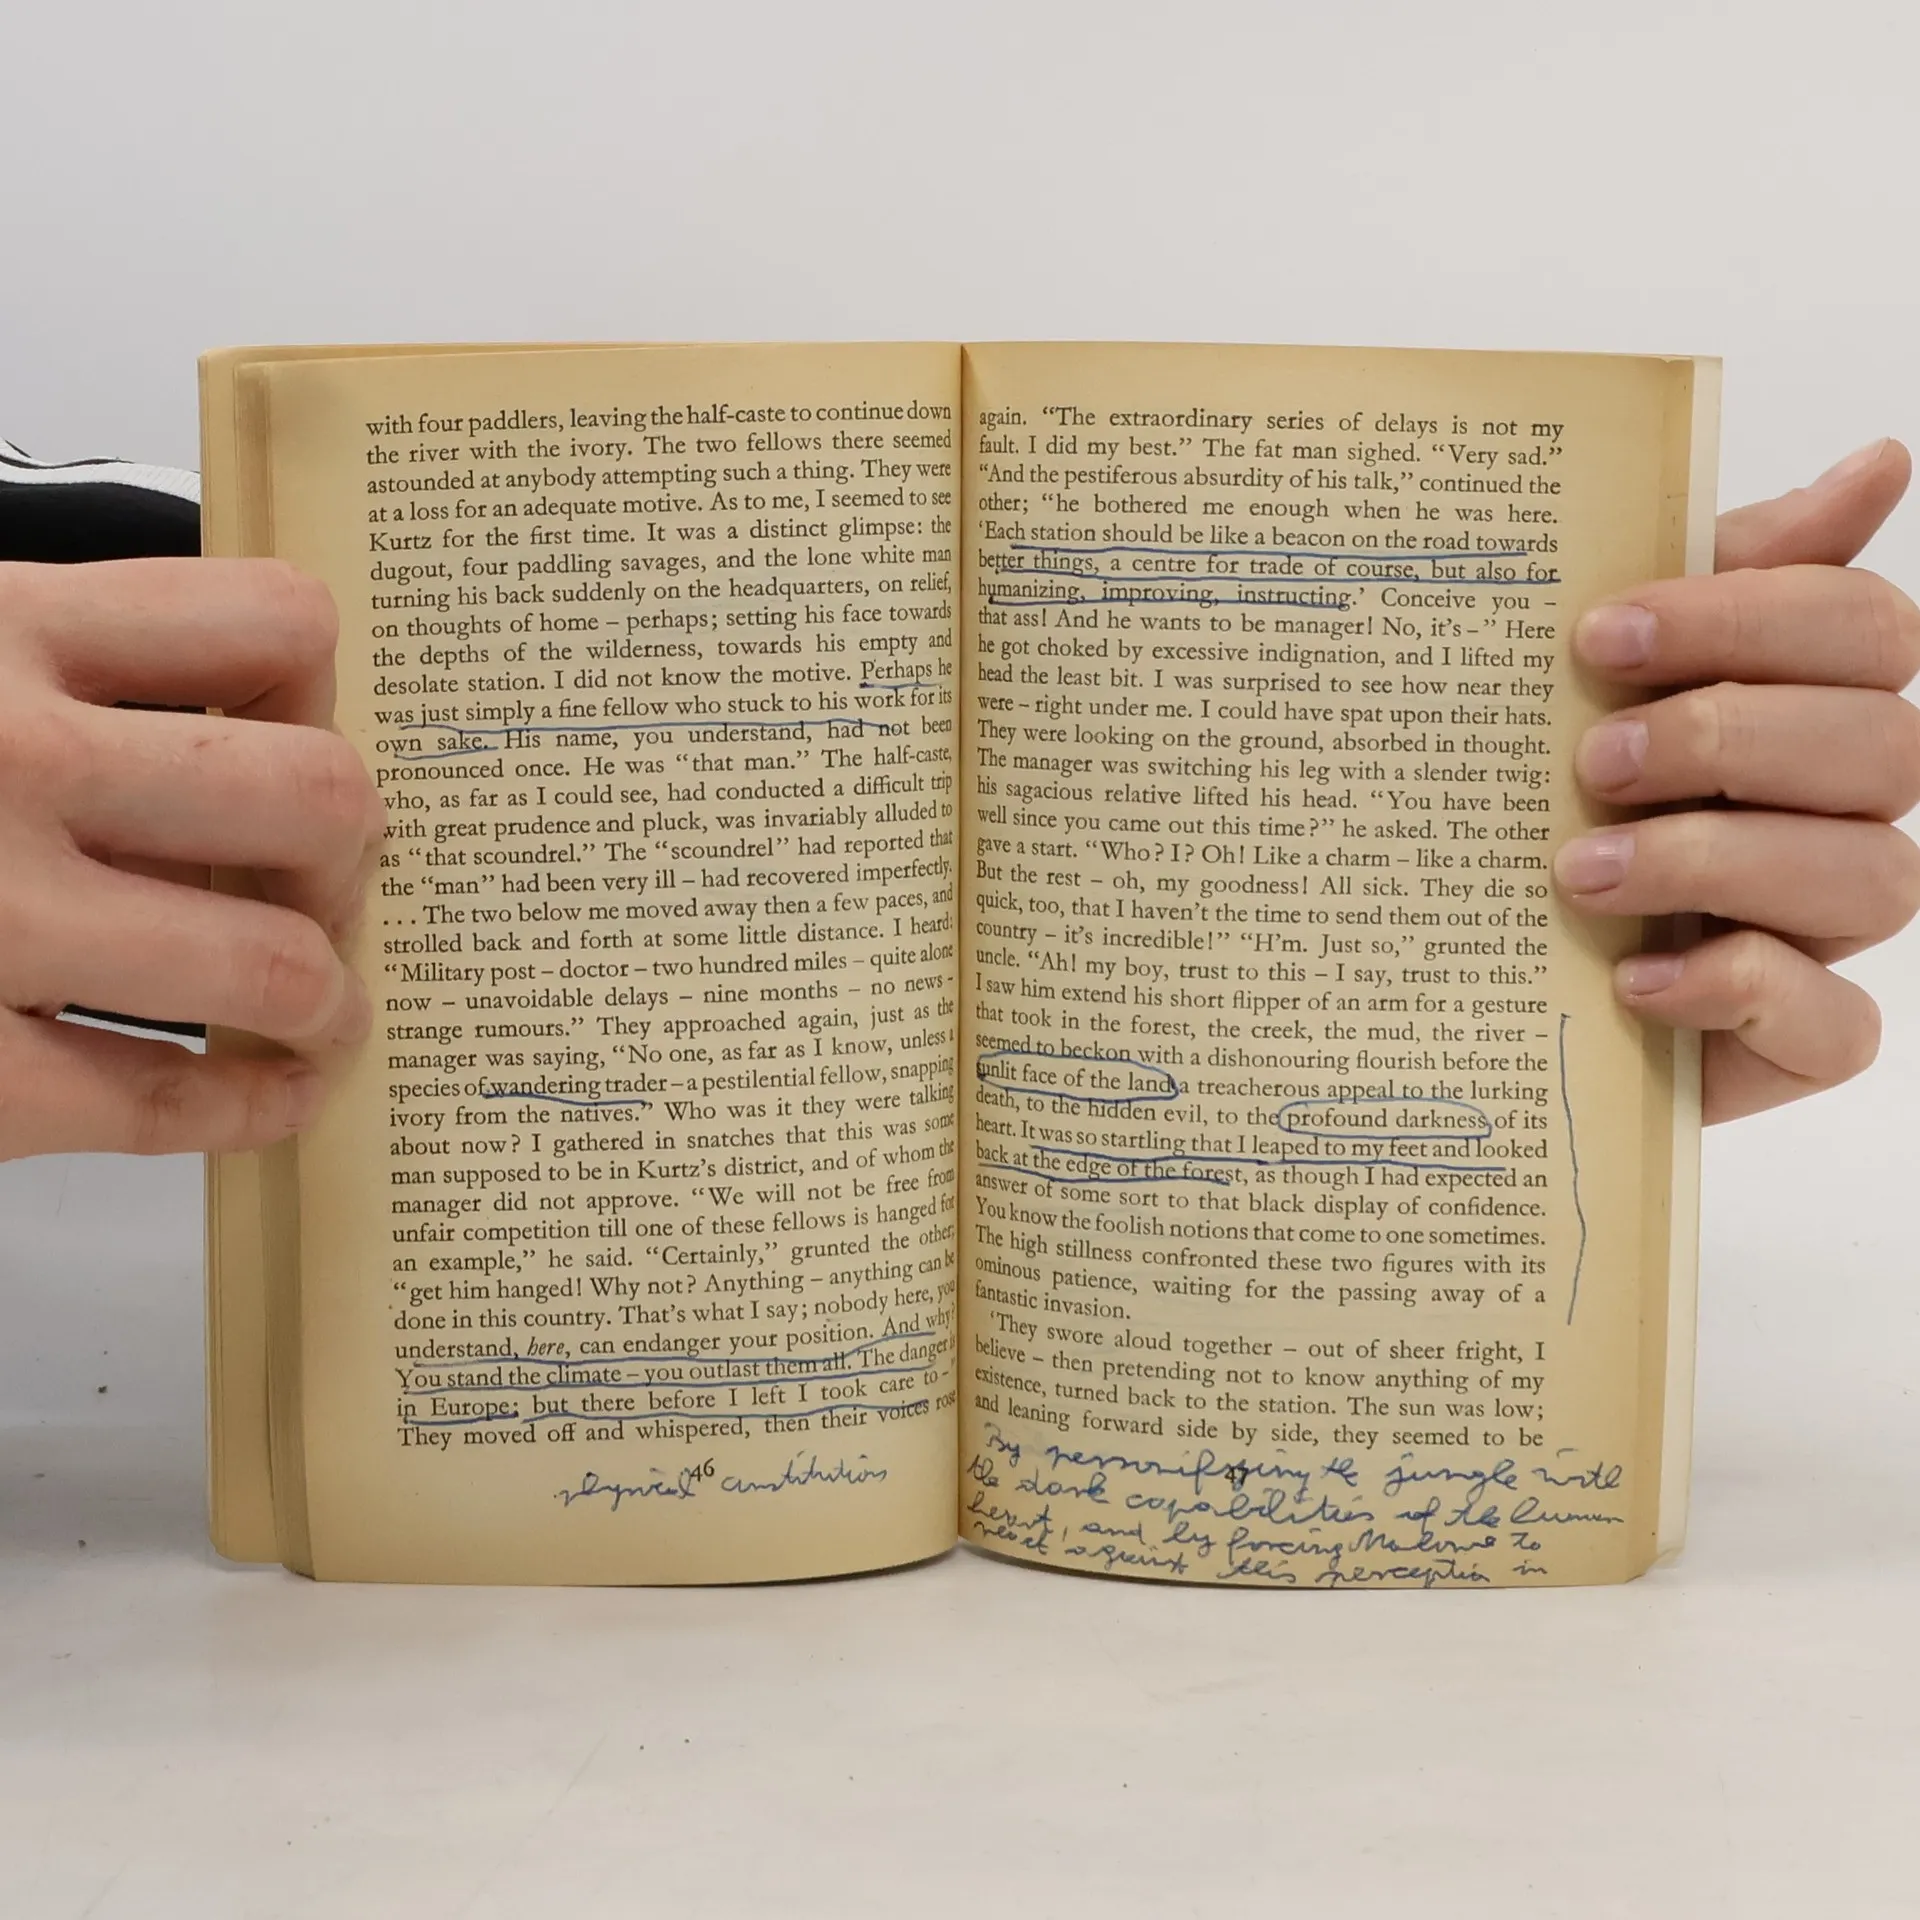 with four paddlers, leaving the half-caste to continue down
the river with the ivory. The two fellows there seemed
astounded at anybody attempting such a thing. They were
at a loss for an adequate motive. As to me, I seemed to see
Kurtz for the first time. It was a distinct glimpse: the
dugout, four paddling savages, and the lone white man
turning his back suddenly on the headquarters, on relief,
on thoughts of home – perhaps; setting his face towards
the depths of the wilderness, towards his empty and
desolate station. I did not know the motive. Perhaps he
was just simply a fine fellow who stuck to his work for its
own sake. His name, you understand, had not been
pronounced once. He was “that man.” The half-caste,
who, as far as I could see, had conducted a difficult trip
with great prudence and pluck, was invariably alluded to
as “that scoundrel.” The “scoundrel” had reported that
the “man” had been very ill – had recovered imperfectly.
... The two below me moved away then a few paces, and
strolled back and forth at some little distance. I heard:
“Military post – doctor – two hundred miles – quite alone
now – unavoidable delays – nine months – no news –
strange rumours.” They approached again, just as the
manager was saying, “No one, as far as I know, unless a
species of wandering trader – a pestilential fellow, snapping
ivory from the natives.” Who was it they were talking
about now? I gathered in snatches that this was some
man supposed to be in Kurtz’s district, and of whom the
manager did not approve. “We will not be free from
unfair competition till one of these fellows is hanged for
an example,” he said. “Certainly,” grunted the other;
“get him hanged! Why not? Anything – anything can be
done in this country. That’s what I say; nobody here, you
understand, here, can endanger your position. And why?
You stand the climate – you outlast them all. The danger is
in Europe; but there before I left I took care to – ”
They moved off and whispered, then their voices rose
46
physical constitutions
again. “The extraordinary series of delays is not my
fault. I did my best.” The fat man sighed. “Very sad.”
“And the pestiferous absurdity of his talk,” continued the
other; “he bothered me enough when he was here.
‘Each station should be like a beacon on the road towards
better things, a centre for trade of course, but also for
humanizing, improving, instructing.’ Conceive you –
that ass! And he wants to be manager! No, it’s – ” Here
he got choked by excessive indignation, and I lifted my
head the least bit. I was surprised to see how near they
were – right under me. I could have spat upon their hats.
They were looking on the ground, absorbed in thought.
The manager was switching his leg with a slender twig:
his sagacious relative lifted his head. “You have been
well since you came out this time?” he asked. The other
gave a start. “Who? I? Oh! Like a charm – like a charm.
But the rest – oh, my goodness! All sick. They die so
quick, too, that I haven’t the time to send them out of the
country – it’s incredible!” “H’m. Just so,” grunted the
uncle. “Ah! my boy, trust to this – I say, trust to this.”
I saw him extend his short flipper of an arm for a gesture
that took in the forest, the creek, the mud, the river –
seemed to beckon with a dishonouring flourish before the
sunlit face of the land a treacherous appeal to the lurking
death, to the hidden evil, to the profound darkness of its
heart. It was so startling that I leaped to my feet and looked
back at the edge of the forest, as though I had expected an
answer of some sort to that black display of confidence.
You know the foolish notions that come to one sometimes.
The high stillness confronted these two figures with its
ominous patience, waiting for the passing away of a
fantastic invasion.
‘They swore aloud together – out of sheer fright, I
believe – then pretending not to know anything of my
existence, turned back to the station. The sun was low;
and leaning forward side by side, they seemed to be
47
By personifying the jungle with
the dark capabilities of the human
heart, and by forcing Malowe to
react against this perception in